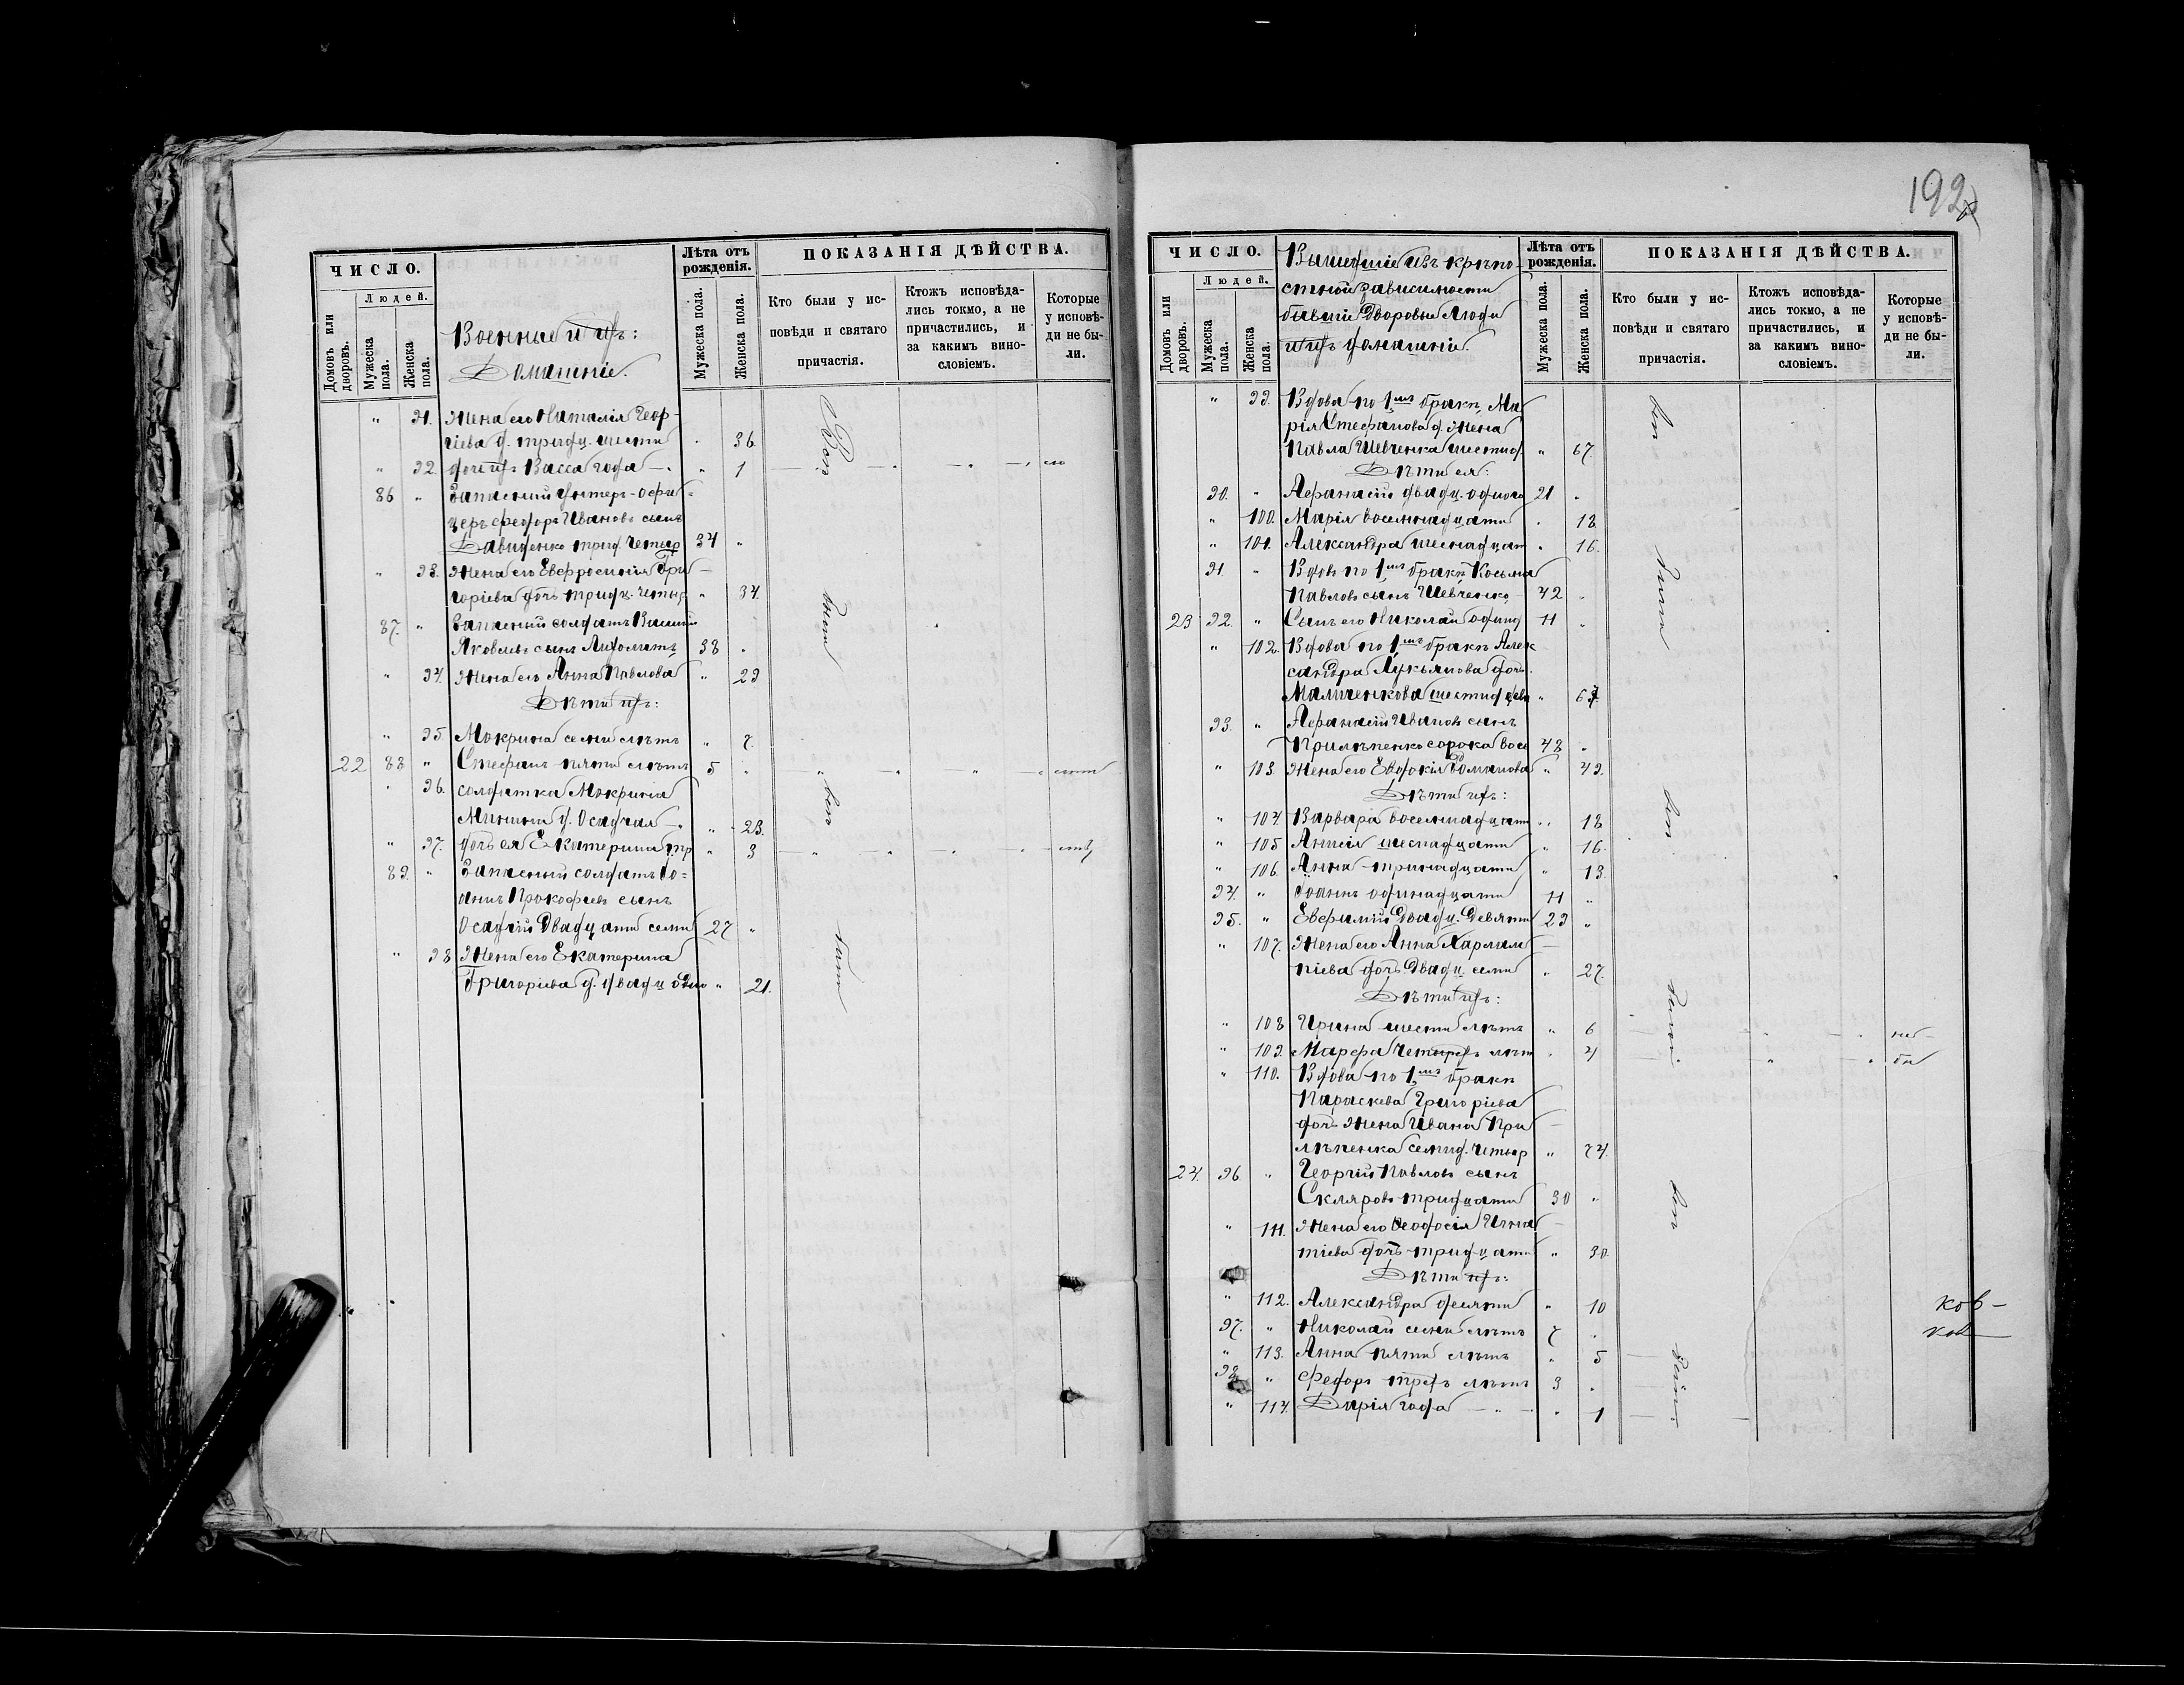 192
ЧИСЛО.
Людей.
Домовъ или дворовъ.
Мужеска пола.
Женска пола.
Военные и ихъ:
Домашніе.
Лѣта отъ рожденія.
Мужеска пола.
Женска пола.
ПОКАЗАНІЯ ДѢЙСТВА.
Кто были у исповѣди и святаго причастія.
Ктожъ исповѣдались токмо, а не причастились, и за какимъ винословіемъ.
Которые у исповѣди не были.
" 91. Жена его Наталія Геор-
гіева д. тридц. шести " 36.
" 92. дочь ихъ Васса года " 1
86 " Запасный унтеръ-офи-
церъ Федоръ Ивановъ сынъ
Давиденко трид. четыр 34 "
" 93. Жена его Евфросинія Гри-
горіева дочь тридц. четыр " 34.
87. " Запасный солдатъ
Яковлевъ сынъ 38 "
" 94. Жена его Анна Павлова " 29
Дѣти ихъ:
" 95. Мокрина семи лѣтъ " 7.
22 88 " Стефанъ пяти лѣтъ 5 "
" 96. солдатка Мокрина
д. Осадчая " 23.
" 97. дочь ея Екатерина тр " 3
89. " Запасный солдатъ Іо-
аннъ Прокофіевъ сынъ
Осадчій двадцати семи 27 "
" 98 Жена его Екатерина
Григоріева д. двадц одно " 21.
ЧИСЛО.
Людей.
Домовъ или дворовъ.
Мужеска пола.
Женска пола.
Вышедшіе изъ крѣпо-
стной зависимости
бывшіе Дворовые люди
и ихъ домашніе.
Лѣта отъ рожденія.
Мужеска пола.
Женска пола.
ПОКАЗАНІЯ ДѢЙСТВА.
Кто были у исповѣди и святаго причастія.
Ктожъ исповѣдались токмо, а не причастились, и за какимъ винословіемъ.
Которые у исповѣди не были.
" 99. Вдова по 1мъ бракѣ Ма
рія Стефанова д. жена
Павла Шевченка шестид " 67.
Дѣти ея:
90. " Афанасій двадц. одного 21 "
" 100. Марія восемнадцати " 18
" 101. Александра шеснадцат " 16.
91. " Вдовъ по 1мъ бракѣ Косьма
Павловъ сынъ Шевченко 42 "
23 92. " Сынъ его Николай одинд 11 "
" 102. Вдова по 1мъ бракѣ Алек
сандра Лукьянова дочь
Маличенкова шестид "
93. " Афанасій Ивановъ сынъ
Прилѣпенко сорока восе 48 "
" 103. Жена его Евдокія Романова " 49.
Дѣти ихъ:
" 104. Варвара восемнадцати " 18
" 105 Анисія шеснадцати " 16.
" 106. Анна тринадцати " 13.
94. " Іоаннъ одинадцати 11 "
95. " Евфимій двадц. девяти 29 "
" 107. Жена его Анна Харлам-
піева дочь двадц. семи " 27.
Дѣти ихъ:
" 108 Ирина шести лѣтъ " 6
" 109. Марфа четырехъ лѣт " 4
" 110. Вдова по 1мъ бракѣ
Параскева Григоріева
дочь жена Ивана При-
лѣпенка семид. четыр " 74.
24. 96. " Георгій Павловъ сынъ
Скляровъ тридцати 30 "
" 111. Жена его Феодосія Игна-
тіева дочь тридцати " 30.
Дѣти ихъ:
" 112. Александра десяти " 10
97. " Николай семи лѣтъ 7 "
" 113. Анна пяти лѣтъ " 5
98 " Федоръ трехъ лѣтъ 3 "
" 114. Дарія года " 1